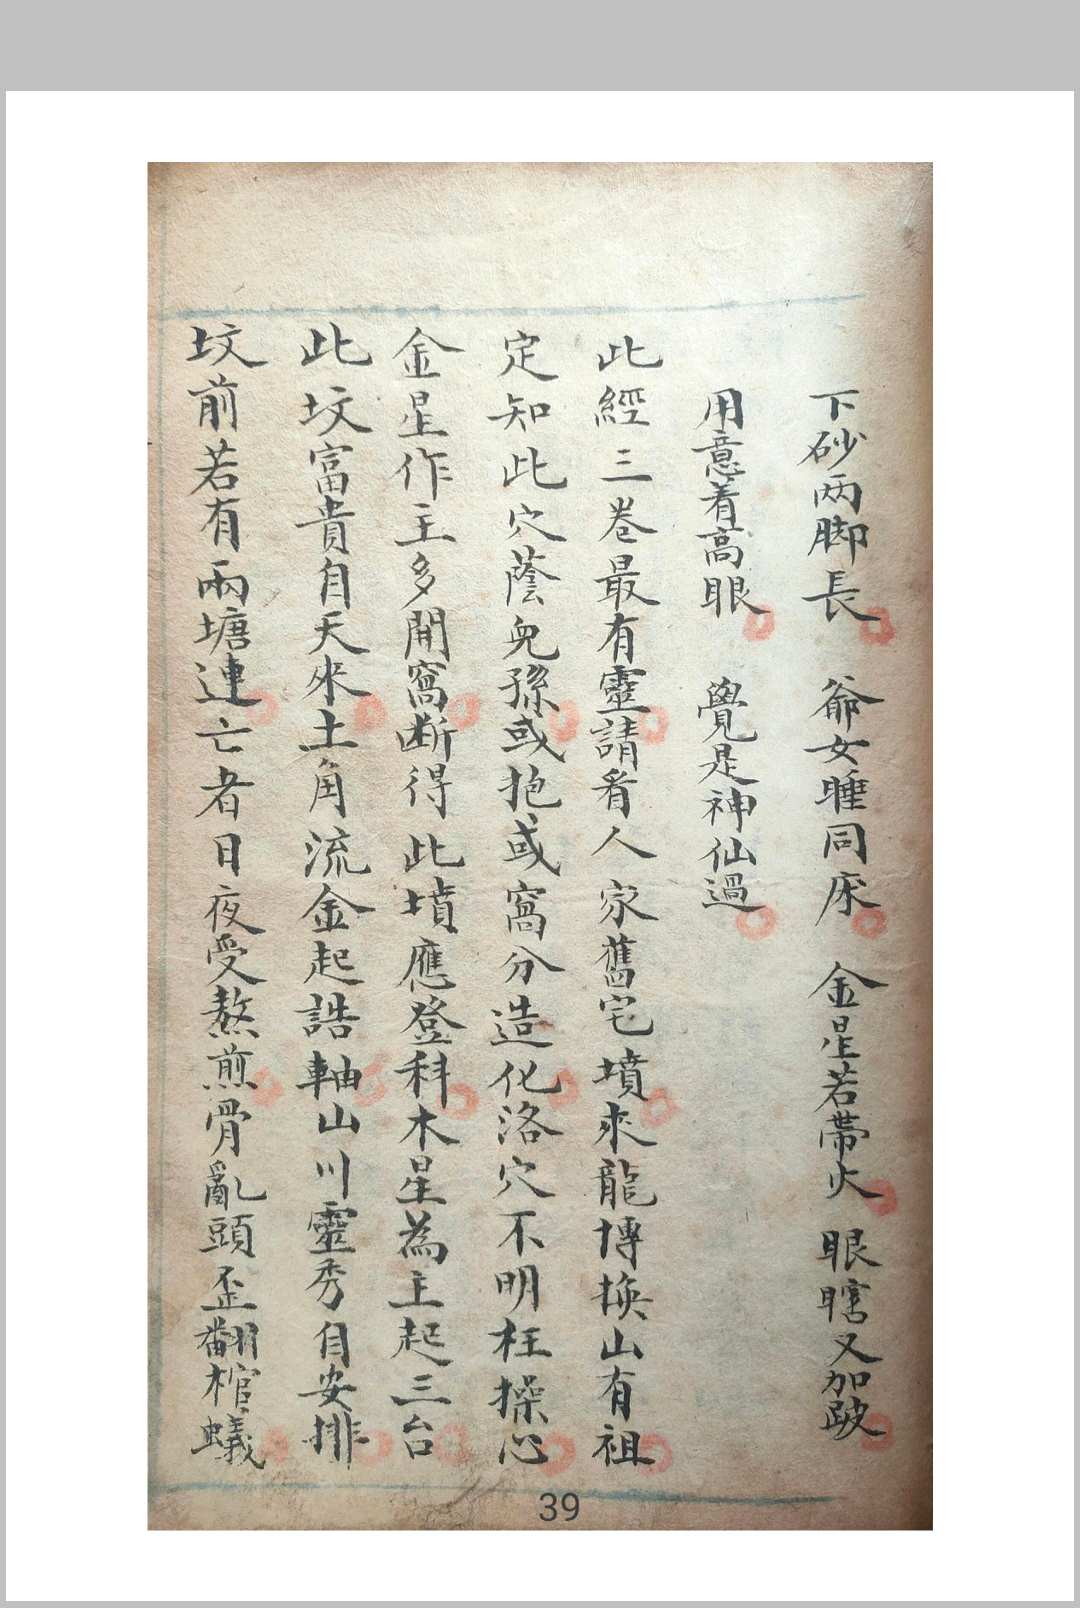 下砂两脚長 爺女睡同床 金星若帶火 眼瞎又加跛
用意着高眼 覺是神仙過
此經三卷最有靈請看人家舊宅墳來龍博換山有祖
定知此穴蔭兒孫或抱或窩分造化洛穴不明枉操心
金星作主多開窩断得此墳應登科木星為主起三台
此坟富貴自天來土角流金起誥軸山川靈秀自安排
坟前若有兩塘連亡者日夜受熬煎骨亂頭歪翻棺蟻
39